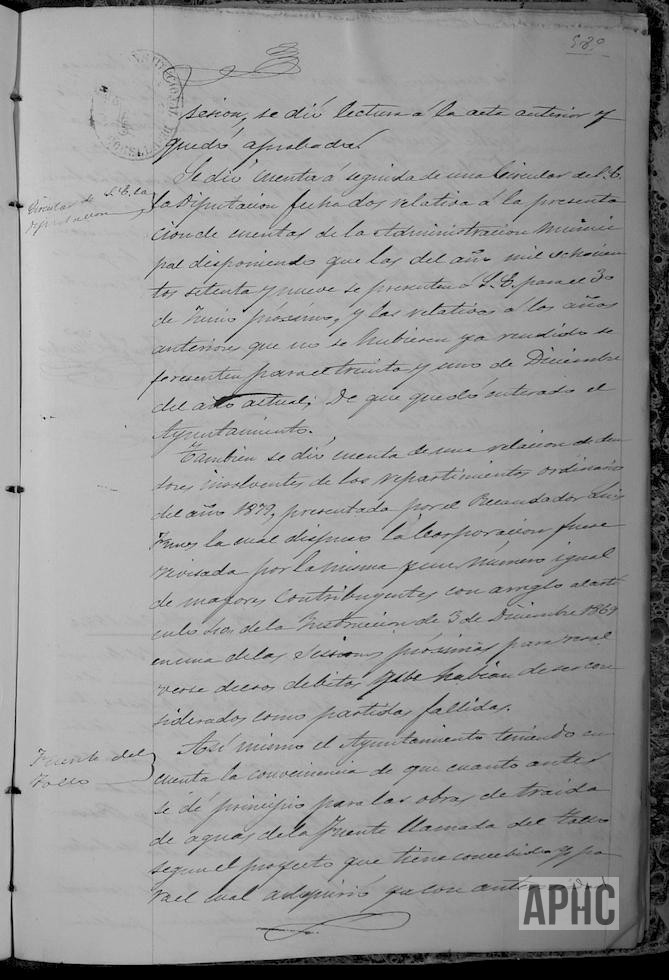 58º
sesion, se dió lectura á la acta anterior y
quedó aprobada.
Circular de S.E. la
Diputacion
Se dió cuenta á seguida de una Circular de S.E.
la Diputacion fecha dos relativa á la presenta
cion de cuentas de la Administracion Munici
pal disponiendo que las del año mil ochocien
tos setenta y nueve se presenten á S.E. para el 30
de Junio próximo, y las relativas á los años
anteriores que no se hubiesen ya rendido se
presenten para el treinta y uno de Diciembre
del año actual; De que quedó enterado el
Ayuntamiento.
Tambien se dió cuenta de una relacion de deu
dores insolventes de los repartimientos ordinario
del año 1879, presentada por el Recaudador Luis
la cual dispuso la Corporacion fuese
revisada por la misma y un número igual
de mayores contribuyentes con arreglo al artí
culo de la Instruccion de 3 de Diciembre 1869
en una de las Sesiones próximas para resol
verse de esos debitos habian de ser con
siderados como partidas fallidas.
Fuente del
Tollo
Así mismo el Ayuntamiento teniendo en
cuenta la conveniencia de que cuanto antes
se dé principio para las obras de traida
de aguas de la Fuente llamada del Tollo
segun el proyecto que tiene concebido y pa
ra el cual adquirió ya con
APHC